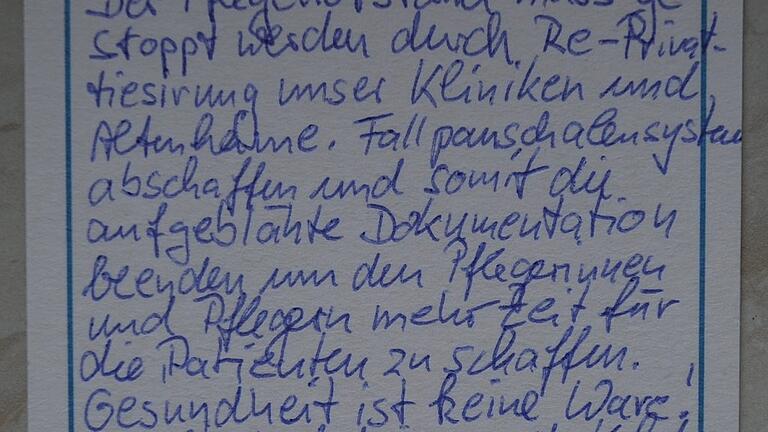 Der Pflegenotstand muss ge-
stoppt werden durch Re-Privat-
tiesirung unser Kliniken und
Altenheime. Fallpauschalensystem
abschaffen und somit die
aufgeblähte Dokumentation
beenden um den Pflegerinnen
und Pflegern mehr Zeit für
die Patienten zu schaffen.
Gesundheit ist keine Ware!